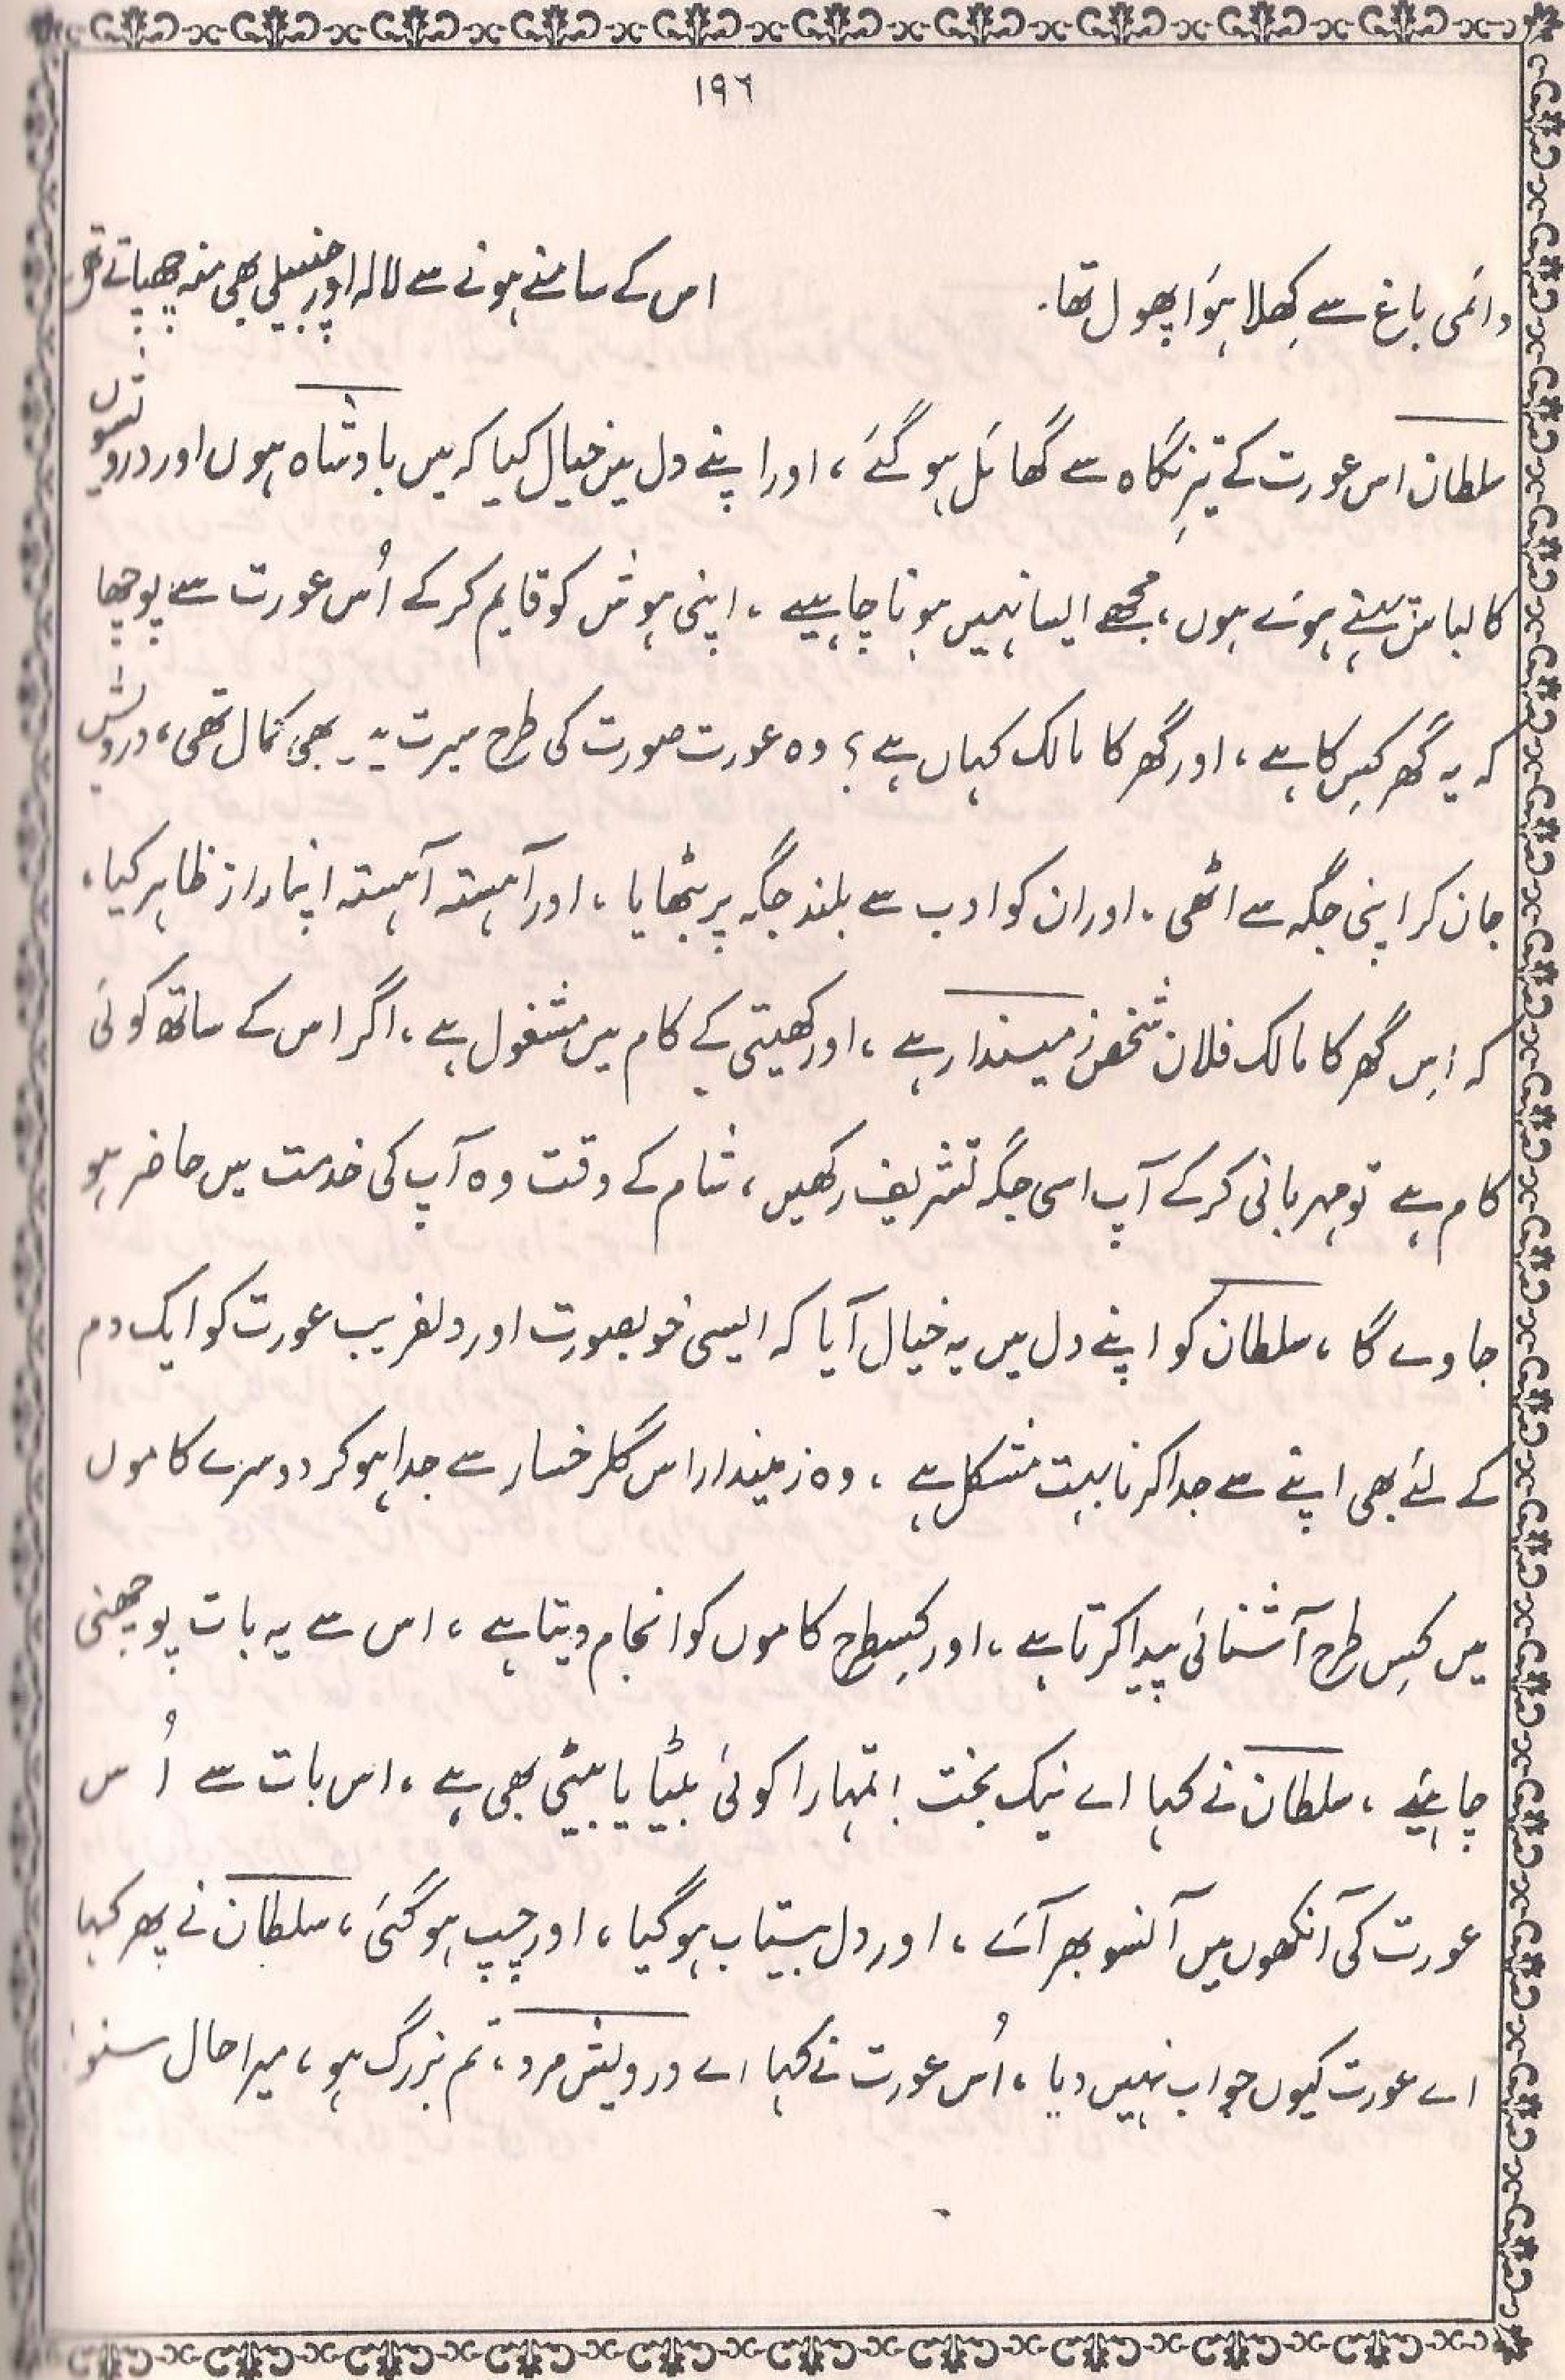 ١٩٦
دائمی باغ سے کِھلا ہوَا پھول تھا۔ اس کے سامنے ہونے سے لالہ اور چنبیلی بھی منہ چھپاتے تھے
سلطان اس عورت کے تیرِ نگاہ سے گھائل ہو گئے ، اور اپنے دل میں خیال کیا کہ میں بادشاہ ہوں اور درویشوں
کا لباس پہنے ہوئے ہوں ، مجھے ایسا نہیں ہونا چاہیے ، اپنی ہوش کو قایم کر کے اُس عورت سے پوچھا
کہ یہ گھر کِس کا ہے ، اور گھر کا مالک کہاں ہے ؟ وہ عورت صورت کی طرح سیرت بھی کمال تھی ، درویش
جان کر اپنی جگہ سے اٹھی ، اور ان کو ادب سے بلند جگہ پر بٹھایا ، اور آہستہ آہستہ اپنا راز ظاہر کیا ،
کہ اِس گھر کا مالک فلان شخص زمیندار ہے ، اور کھیتی کے کام میں مشغول ہے ، اگر اس کے ساتھ کوئی
کام ہے تو مہربانی کر کے آپ اسی جگہ تشریف رکھیں ، شام کے وقت وہ آپ کی خدمت میں حاضر ہو
جاوے گا ، سلطان کو اپنے دل میں یہ خیال آیا کہ ایسی خوبصورت اور دلفریب عورت کو ایک دم
کے لئے بھی اپنے سے جدا کرنا بہت مشکل ہے ، وہ زمیندار اس گلرخسار سے جدا ہو کر دوسرے کاموں
میں کِس طرح آشنائی پیدا کرتا ہے ، اور کِسطرح کاموں کو انجام دیتا ہے ، اس سے یہ بات پوچھنی
چاہئیے ، سلطان نے کہا اے نیک بخت ! تمہارا کوئی بیٹا یا بیٹی بھی ہے ، اس بات سے اُس
عورت کی آنکھوں میں آنسو بھر آئے ، اور دل بیتاب ہو گیا ، اور چپ ہو گئی ، سلطان نے پھر کہا
اے عورت کیوں جواب نہیں دیا ، اُس عورت نے کہا اے درویش مرد ، تم بزرگ ہو ، میرا حال سنو